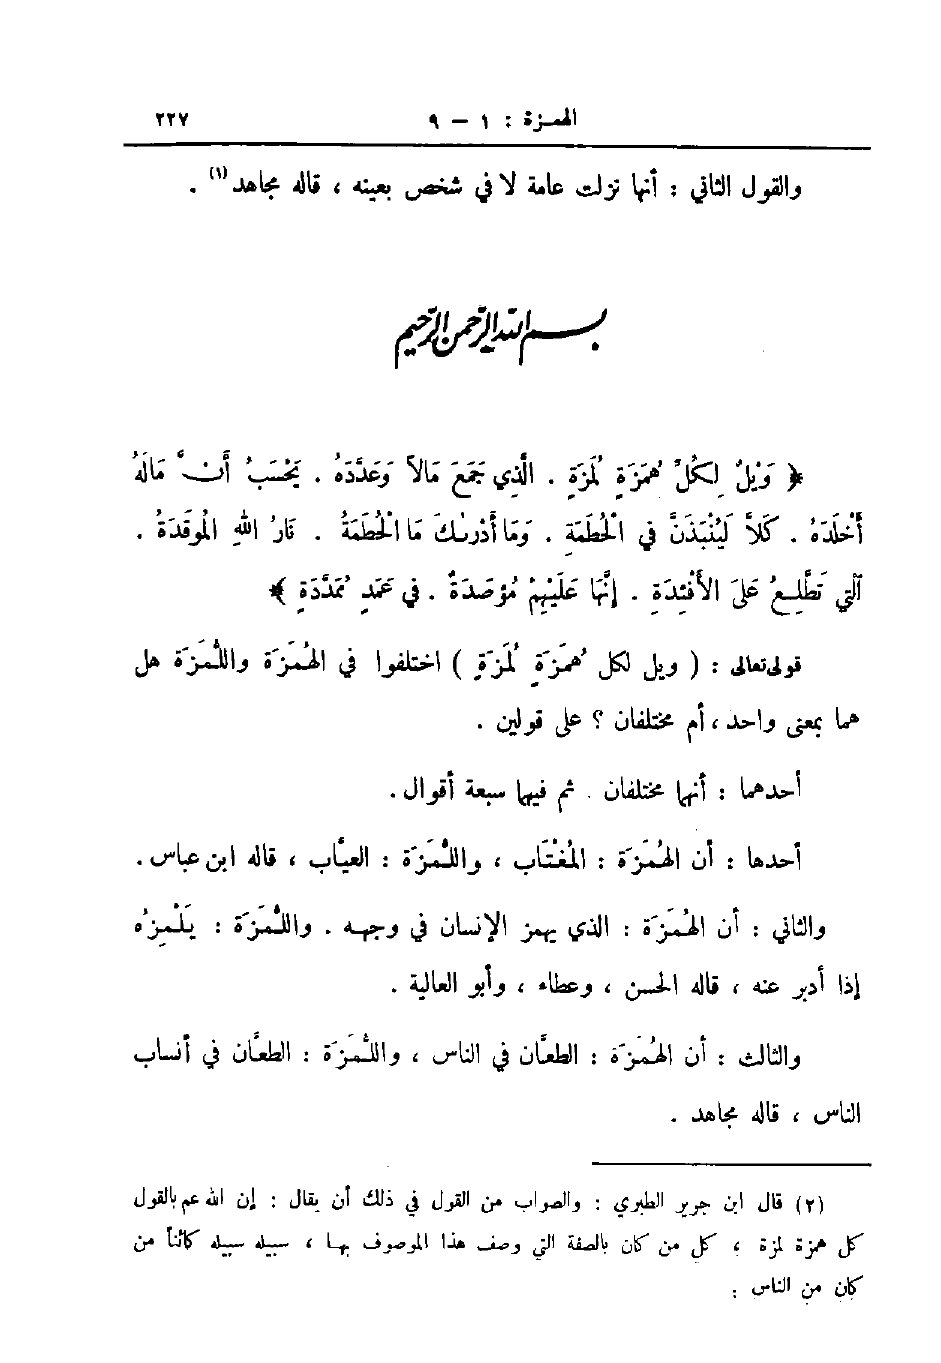 الهمزة : ١ - ٩ ٢٢٧
والقول الثاني : أنها نزلت عامة لا في شخص بعينه ، قاله مجاهد(١) .
بسم الله الرحمن الرحيم
﴿ وَيْلٌ لِكُلِّ هُمَزَةٍ لُمَزَةٍ . الَّذِي جَمَعَ مَالاً وَعَدَّدَهُ . يَحْسَبُ أَنَّ مَالَهُ
أَخْلَدَهُ . كَلاَّ لَيُنْبَذَنَّ فِي الْحُطَمَةِ . وَمَا أَدْرٰىكَ مَا الْحُطَمَةُ . نَارُ اللهِ الْمُوقَدَةُ .
الَّتِي تَطَّلِعُ عَلَى الأَفْئِدَةِ . إِنَّهَا عَلَيْهِمْ مُؤْصَدَةٌ . فِي عَمَدٍ مُمَدَّدَةٍ ﴾
قوله تعالى : ( ويل لكل هُمَزَةٍ لُمَزَةٍ ) اختلفوا في الهُمَزَة واللُّمَزَة هل
هما بمعنى واحد ، أم مختلفان ؟ على قولين .
أحدهما : أنهما مختلفان . ثم فيهما سبعة أقوال .
أحدها : أن الهُمَزَة : المُغْتَاب ، واللُّمَزَة : العيَّاب ، قاله ابن عباس .
والثاني : أن الهُمَزَة : الذي يهمز الإنسان في وجهه . واللُّمَزَة : يَلْمِزُه
إذا أدبر عنه ، قاله الحسن ، وعطاء ، وأبو العالية .
والثالث : أن الهُمَزَة : الطعَّان في الناس ، واللُّمَزَة : الطعَّان في أنساب
الناس ، قاله مجاهد .
(٢) قال ابن جرير الطبري : والصواب من القول في ذلك أن يقال : إن الله عم بالقول
كل همزة لمزة ، كل من كان بالصفة التي وصف هذا الموصوف بها ، سبيله سبيله كائناً من
كان من الناس .